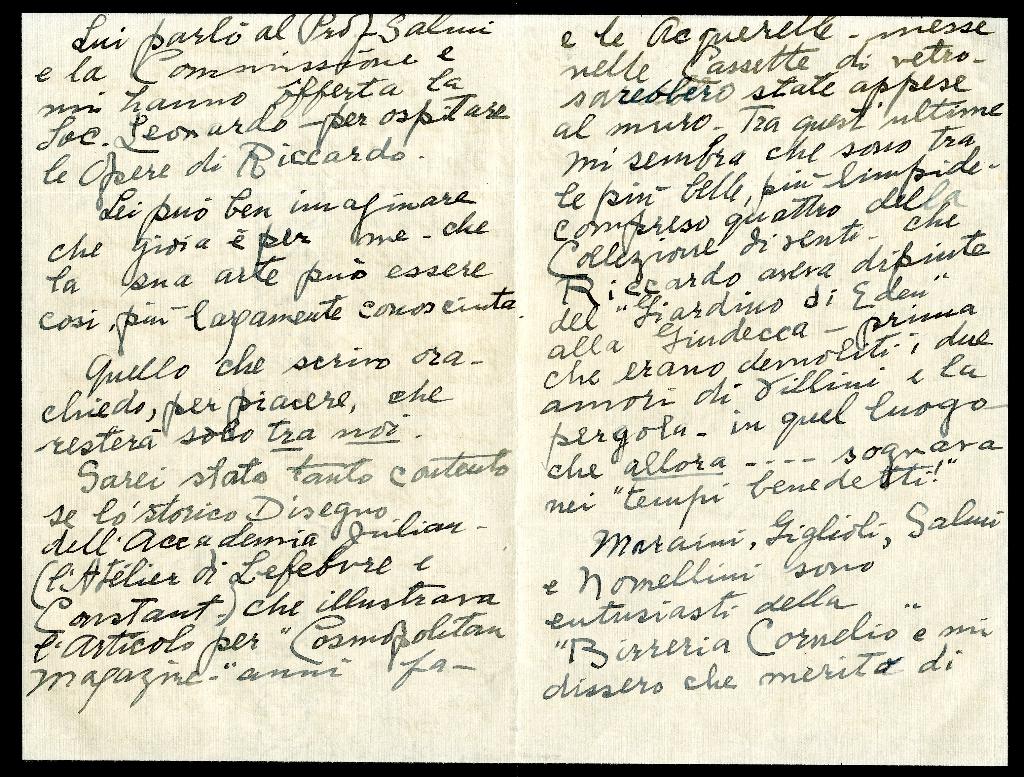 Lui parlò al Prof Salmi
e la Commissione e
mi hanno offerta la
Soc. Leonardo - per ospitare
le Opere di Riccardo.
Lei può ben imaginare
che gioia è per me - che
la sua arte può essere
così, più largamente conosciuta.
Quello che scrivo ora -
chiedo, per piacere, che
resterà solo tra noi.
Sarei stato tanto contento
se lo storico Disegno
dell'Accademia Julian -
(l'Atélier di Lefebvre e
Constant,) che illustrava
l'Articolo per "Cosmopolitan
magazine -" anni fa -
e le Acquerelle - messe
nelle Cassette di vetro -
sarebbero state appese
al muro - Tra quest'ultime
mi sembra che sono tra
le più belle, più limpide -
compreso quattro della
Collezione di venti - che
Riccardo aveva dipinte
del "Giardino di Eden"
alla Giudecca - prima
che erano demoliti i due
amori di Villini e la
pergola - in quel luogo
che allora - - - - sognava
nei "tempi benedetti!"
Maraini, Giglioli, Salmi
e Nomellini sono
entusiasti della
"Birreria Cornelio" e mi
dissero che merita di